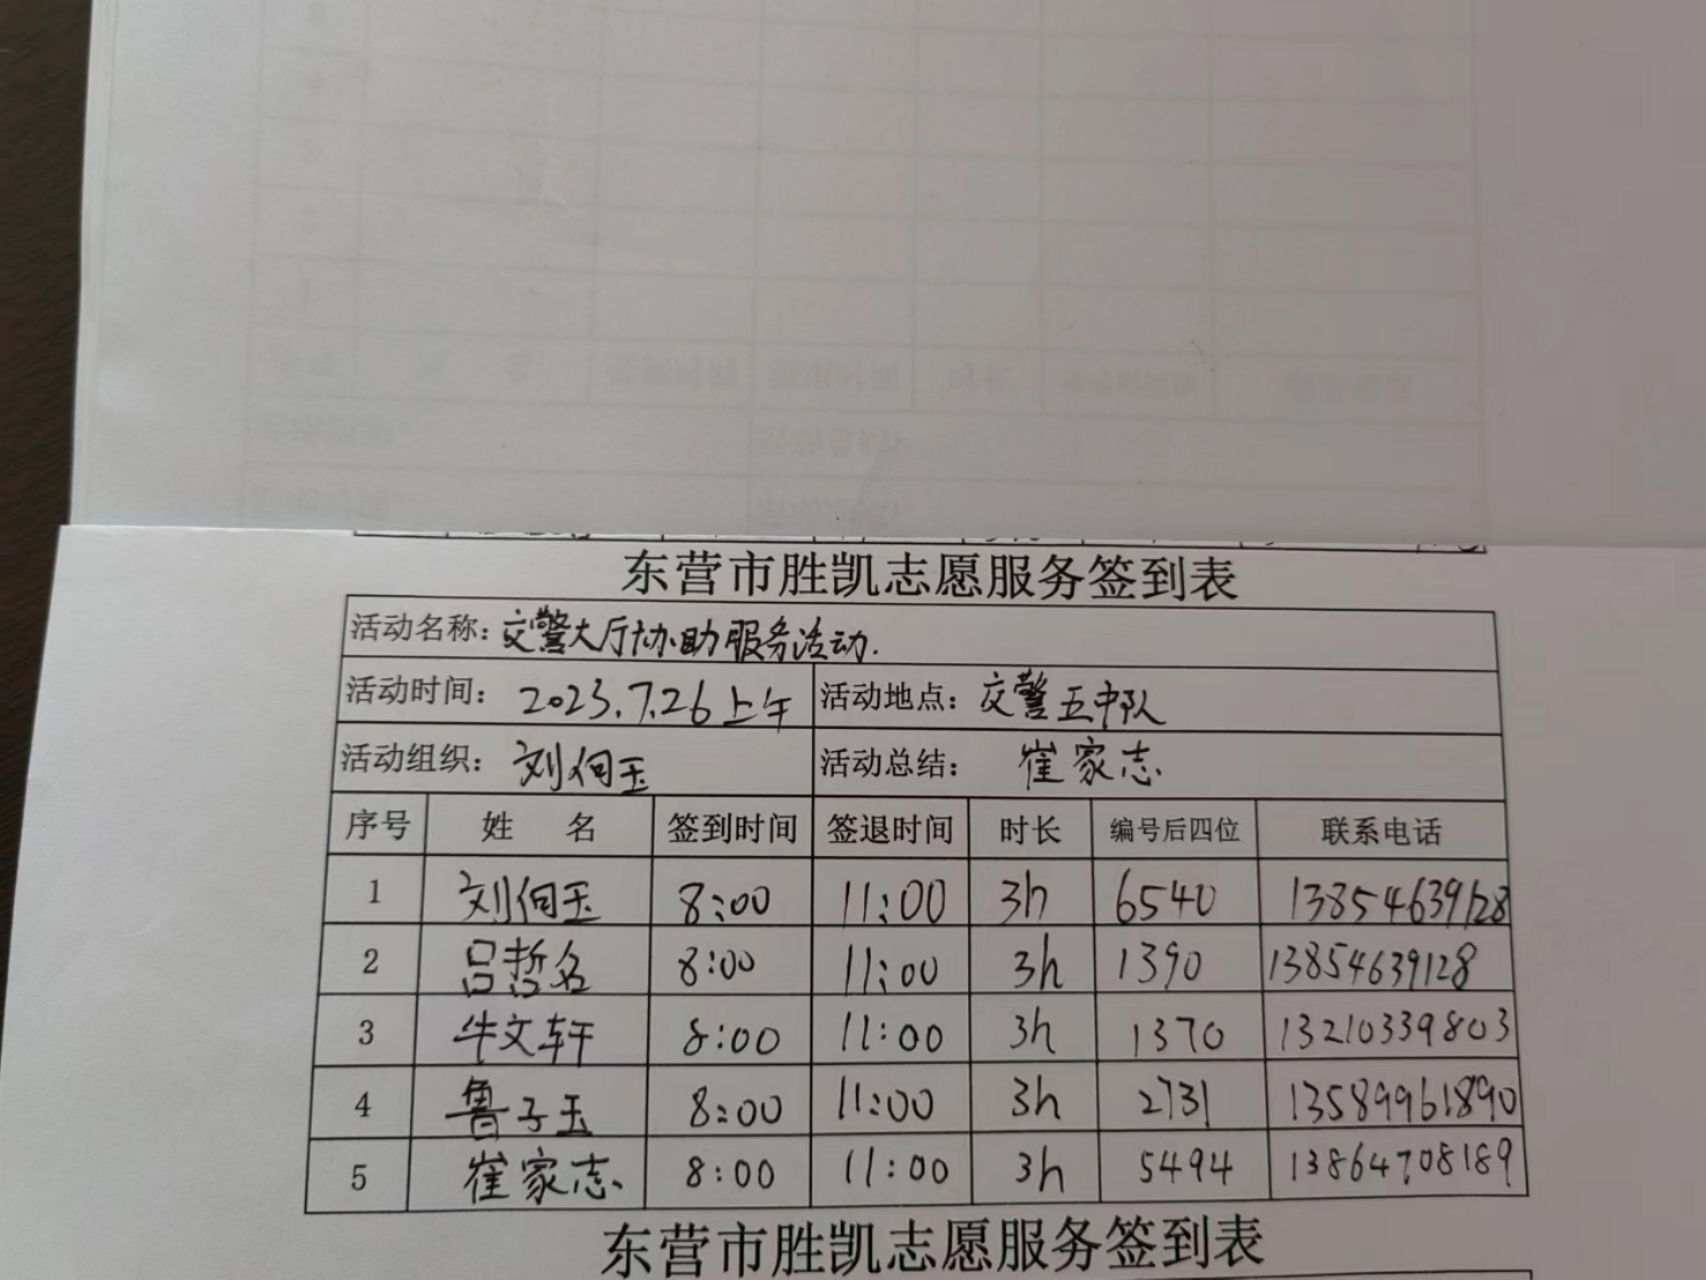 东营市胜凯志愿服务签到表
活动名称：交警大厅协助服务活动.
活动时间：2023.7.26上午 活动地点：交警五中队
活动组织：刘何玉 活动总结：崔家志
序号 姓 名 签到时间 签退时间 时长 编号后四位 联系电话
1 刘何玉 8:00 11:00 3h 6540 13854639128
2 吕哲名 8:00 11:00 3h 1390 13854639128
3 牛文轩 8:00 11:00 3h 1370 13210339803
4 鲁子玉 8:00 11:00 3h 2731 13589961890
5 崔家志 8:00 11:00 3h 5494 13864708189
东营市胜凯志愿服务签到表